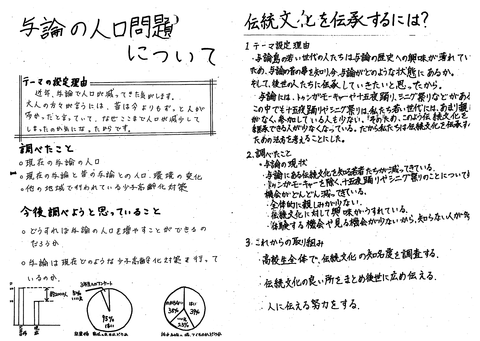 与論の人口問題
について
テーマの設定理由
近年、与論で人口が減ってきた気がします。
大人の方々が言うには、昔は今よりもずっと人が
多かったと言っていて、なぜここまで人口が減少して
しまったのか気になったからです。
調べたこと
○現在の与論の人口
○現在の与論と昔の与論との人口、環境の変化
○他の地域で行われている少子高齢化対策
今後調べようと思っていること
○どうすれば与論の人口を増やすことができるの
だろうか
○与論は現在どのような少子高齢化対策を行って
いるのか。
93%
はい
39%
38%
23%
伝統文化を伝承するには?
1.テーマ設定理由
・与論島の若い世代の人たちは与論の歴史への興味が薄れてい
ため、与論の昔の事を知り、今、与論がどのような状態にあるか。
そして、後世の人たちに伝承していきたいと思ったから。
・与論には、トゥンガモーキャーや十五夜踊り、シニグ祭りなどがあ
この中でも十五夜踊りやシニグ祭りは、私たち若い世代には、あまり親
がなく、参加している人も少ない。そのため、このよう伝統文化を
継承できる人が少なくなっている。だから私たちは伝統文化を伝承す
ための方法を考えることにした。
2.調べたこと
・与論の現状
・与論にある伝統文化を知る若者たちが減ってきている。
・トゥンガモーキャーを除く、十五夜踊りやシニグ祭りのことについて
機会がどんどん減ってきている。
・全体的に親しみが少ない。
・伝統文化に対して興味がうすれている。
・体験する機会や見る機会が少ないから、知らない人が
3.これからの取り組み
・高校生全体で、伝統文化の知名度を調査する.
・伝統文化の良い所をまとめ後世に広め伝える.
・人に伝える努力をする.